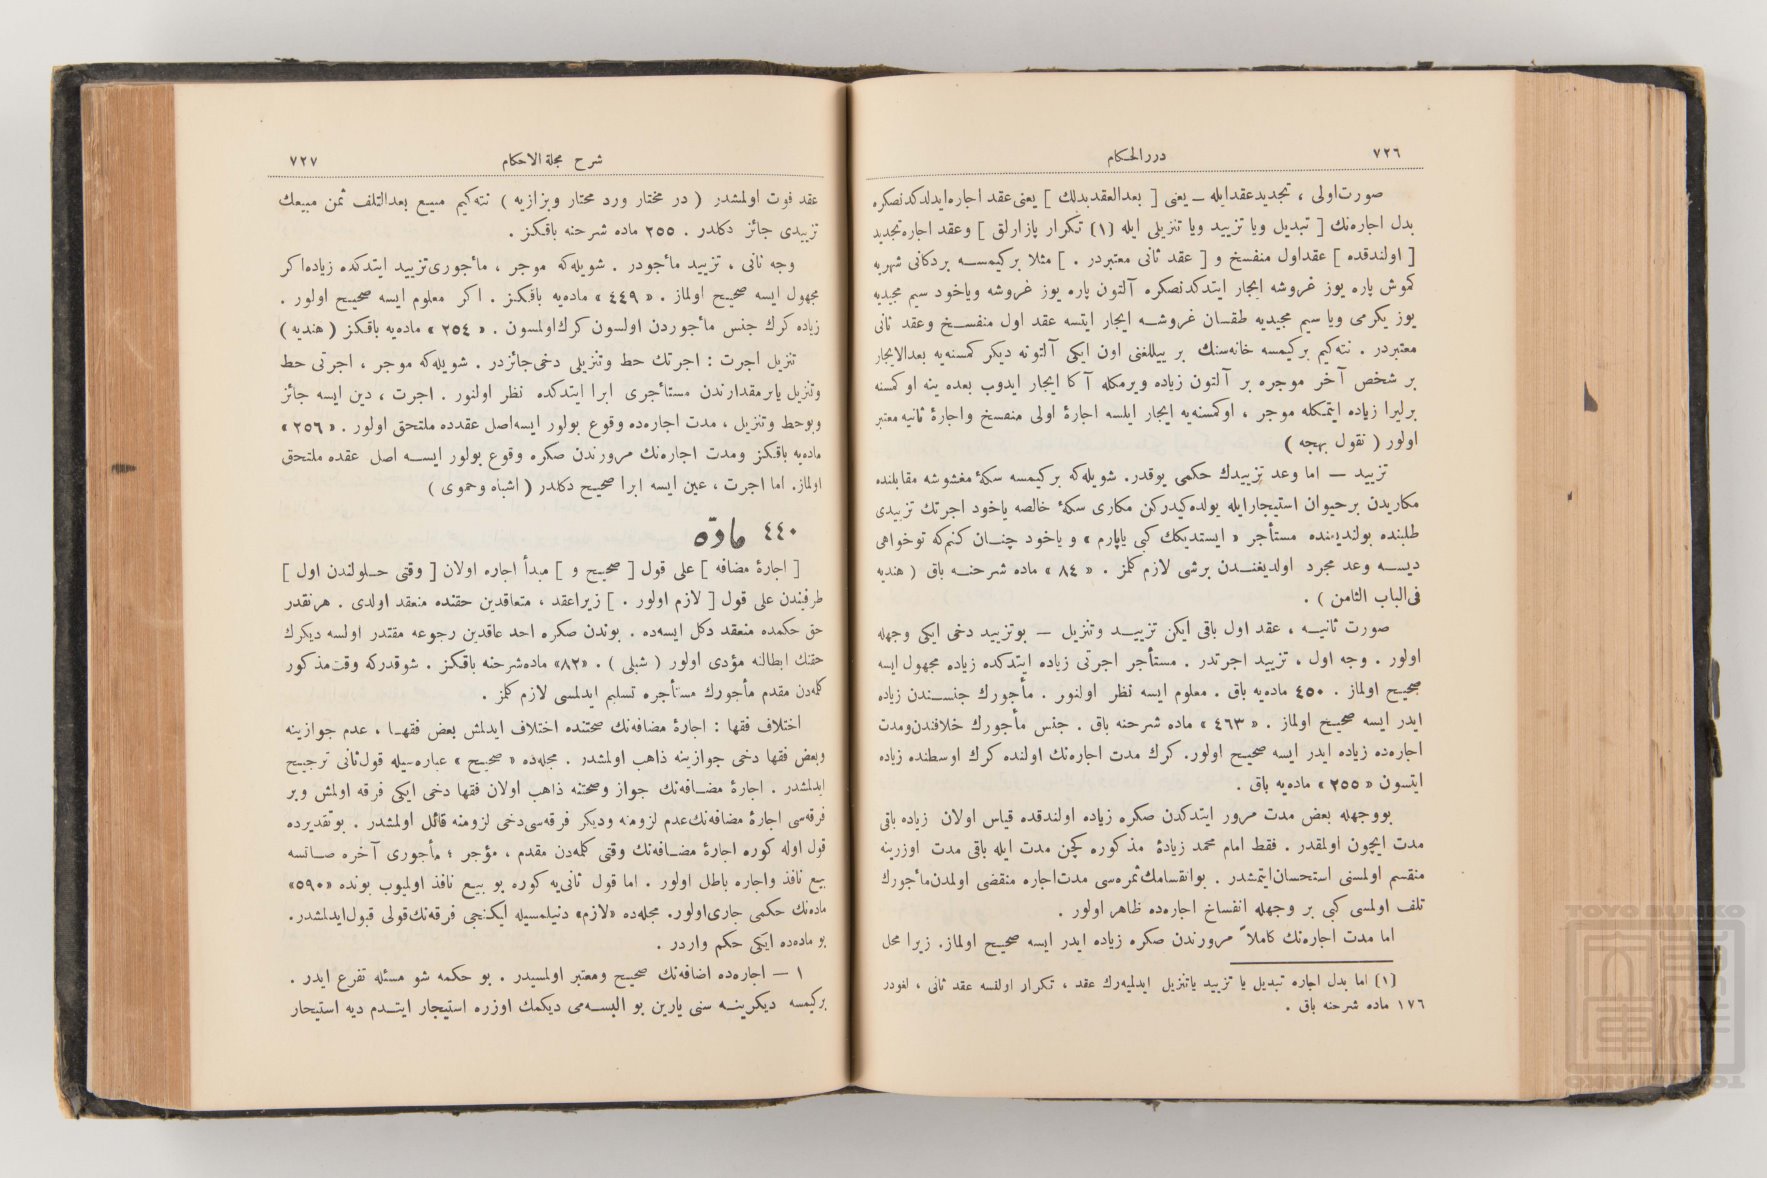 ٧٢٦
درر الحكام
صورت اولى ، تجديد عقد ايله ــ يعنى [ بعد العقد بدلك ] يعنى عقد اجاره ايدلدكدنصكره
بدل اجاره‌نك [ تبديل ويا تزييد ويا تنزيلى ايله (١) تكرار پازارلق ] وعقد اجاره تجديد
[ اولندقده ] عقداول منفسخ و [ عقد ثانى معتبردر . ] مثلا بركيمســه بردكانى شهريه
كموش پاره يوز غروشه ايجار ايتدكدنصكره آلتون پاره يوز غروشه وياخود سيم مجيديه
يوز يكرمى ويا سيم مجيديه طقسان غروشــه ايجار ايتسه عقد اول منفســخ وعقد ثانى
معتبردر . نته‌كيم بركيمسه خانه‌سنك بر ييللغنى اون ايكى آلتونه ديكر كمسنه‌يه بعدالايجار
بر شخص آخر موجره بر آلتون زياده ويرمكله آ كا ايجار ايدوب بعده ينه او كمسنه
برليرا زياده ايتمكله موجر ، اوكمسنه‌يه ايجار ايلسه اجارهٔ اولى منفسخ واجارهٔ ثانيه معتبر
اولور ( نقول بهجه )
تزييد ــ اما وعد تزييدك حكمى يوقدر. شويله‌كه بركيمسه سكهٔ مغشوشه مقابلنده
مكاريدن برحيوان استيجارايله يولده‌كيدركن مكارى سكهٔ خالصه ياخود اجرتك تزييدى
طلبنده بولنديغنده مستأجر « ايستديكك كبى ياپارم » و ياخود چنــان كنم‌كه توخواهى
ديســه وعد مجرد اولديغنــدن برشى لازم كلمز . « ٨٤ » ماده شرحنــه باق ( هنديه
فى الباب الثامن ) .
صورت ثانيــه ، عقد اول باقى ايكن تزييــد وتنزيل ــ بوتزييد دخى ايكى وجهله
اولور . وجه اول ، تزييد اجرتدر . مستأجر اجرتى زياده ايتدكده زياده مجهول ايسه
صحيح اولماز . ٤٥٠ ماده‌يه باق . معلوم ايسه نظر اولنور . مأجورك جنســندن زياده
ايدر ايسه صحيح اولماز . « ٤٦٣ » ماده شرحنه باق . جنس مأجورك خلافندن‌ومدت
اجاره‌ده زياده ايدر ايسه صحيح اولور. كرك مدت اجاره‌نك اولنده كرك اوسطنده زياده
ايتسون « ٢٥٥ » ماده‌يه باق .
بووجهله بعض مدت مرور ايتدكدن صكره زياده اولندقده قياس اولان زياده باقى
مدت ايچون اولمقدر . فقط امام محمد زيادهٔ مذكوره كچن مدت ايله باقى مدت اوزرينه
منقسم اولمسنى استحسان‌ايتمشدر . بوانقسامك‌ثمره‌سى مدت‌اجاره منقضى اولمدن‌مأجورك
تلف اولمسى كبى بر وجهله انفساخ اجاره‌ده ظاهر اولور .
اما مدت اجاره‌نك كاملاً مرورندن صكره زياده ايدر ايسه صحيح اولماز. زيرا محل
(١) اما بدل اجاره تبديل يا تزييد ياتنزيل ايدلميه‌رك عقد ، تكرار اولنسه عقد ثانى ، لغودر
١٧٦ ماده شرحنه باق .
شرح مجلة الاحكام
٧٢٧
عقد فوت اولمشدر ( در مختار ورد محتار وبزازيه ) نته‌كيم مبيع بعدالتلف ثمن مبيعك
تزييدى جائز دكلدر . ٢٥٥ ماده شرحنه باقكز .
وجه ثانى ، تزييد مأجوردر . شويله‌كه موجر ، مأجورى‌تزييد ايتدكده زياده‌اكر
مجهول ايسه صحيح اولماز . « ٤٤٩ » ماده‌يه باقكز . اكر معلوم ايسه صحيح اولور .
زياده كرك جنس مأجوردن اولسون كرك‌اولمسون . « ٢٥٤ » ماده‌يه باقكز ( هنديه )
تنزيل اجرت : اجرتك حط وتنزيلى دخى‌جائزدر . شويله‌كه موجر ، اجرتى حط
وتنزيل يابرمقدارندن مستأجرى ابرا ايتدكده نظر اولنور . اجرت ، دين ايسه جائز
وبوحط وتنزيل ، مدت اجاره‌ده وقوع بولور ايسه‌اصل عقدده ملتحق اولور . « ٢٥٦ »
ماده‌يه باقكز ومدت اجاره‌نك مرورندن صكره وقوع بولور ايســه اصل عقده ملتحق
اولماز. اما اجرت ، عين ايسه ابرا صحيح دكلدر ( اشباه وحموى )
٤٤٠ مادّه
[ اجارهٔ مضافه ] على قول [ صحيح و ] مبدأ اجاره اولان [ وقتى حــلولندن اول ]
طرفيندن على قول [ لازم اولور . ] زيراعقد ، متعاقدين حقنده منعقد اولدى . هرنقدر
حق حكمده منعقد دكل ايسه‌ده . بوندن صكره احد عاقدين رجوعه مقتدر اولسه ديكرك
حقنك ابطالنه مؤدى اولور ( شبلى ) . «٨٢» ماده‌شرحنه باقكز . شوقدركه وقت‌مذكور
كلمه‌دن مقدم مأجورك مستأجره تسليم ايدلمسى لازم كلمز .
اختلاف فقها : اجارهٔ مضافه‌نك صحتنده اختلاف ايدلمش بعض فقهــا ، عدم جوازينه
وبعض فقها دخى جوازينه ذاهب اولمشدر . مجله‌ده « صحيح » عباره‌سيله قول‌ثانى ترجيح
ايدلمشدر . اجارهٔ مضــافه‌نك جواز وصحتنه ذاهب اولان فقها دخى ايكى فرقه اولمش وبر
فرقه‌سى اجارهٔ مضافه‌نك‌عدم لزومنه وديكر فرقه‌سى‌دخى لزومنه قائل اولمشدر . بوتقديرده
قول اوله كوره اجارهٔ مضــافه‌نك وقتى كلمه‌دن مقدم ، مؤجر ؛ مأجورى آخره صــاتسه
بيع نافذ واجاره باطل اولور . اما قول ثانى‌يه كوره بو بيــع نافذ اولميوب بونده «٥٩٠»
ماده‌نك حكمى جارى‌اولور. مجله‌ده «لازم» دنيلمسيله ايكنجى فرقه‌نك‌قولى قبول‌ايدلمشدر.
بو ماده‌ده ايكى حكم واردر .
١ ــ اجاره‌ده اضافه‌نك صحيح ومعتبر اولمسيدر . بو حكمه شو مسئله تفرع ايدر .
بركيمسه ديكرينــه سنى يارين بو البســه‌مى ديكمك اوزره استيجار ايتــدم ديه استيجار